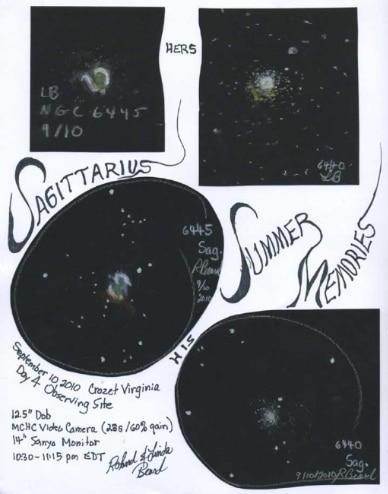 HERS
LB
NGC 6445
9/10
6440
LB
SAGITTARIUS
SUMMER
MEMORIES
6445
Sag.
RBeard
9/10
2010
HIS
September 10, 2010 Crozet Virginia
Day 4. Observing Site
12.5" Dob
MCHC Video Camera (28s/60% gain)
14" Sanyo Monitor
10:30-11:15 pm EDT
Roland & Linda
Beard
6440
Sag.
9/10/2010 RBeard